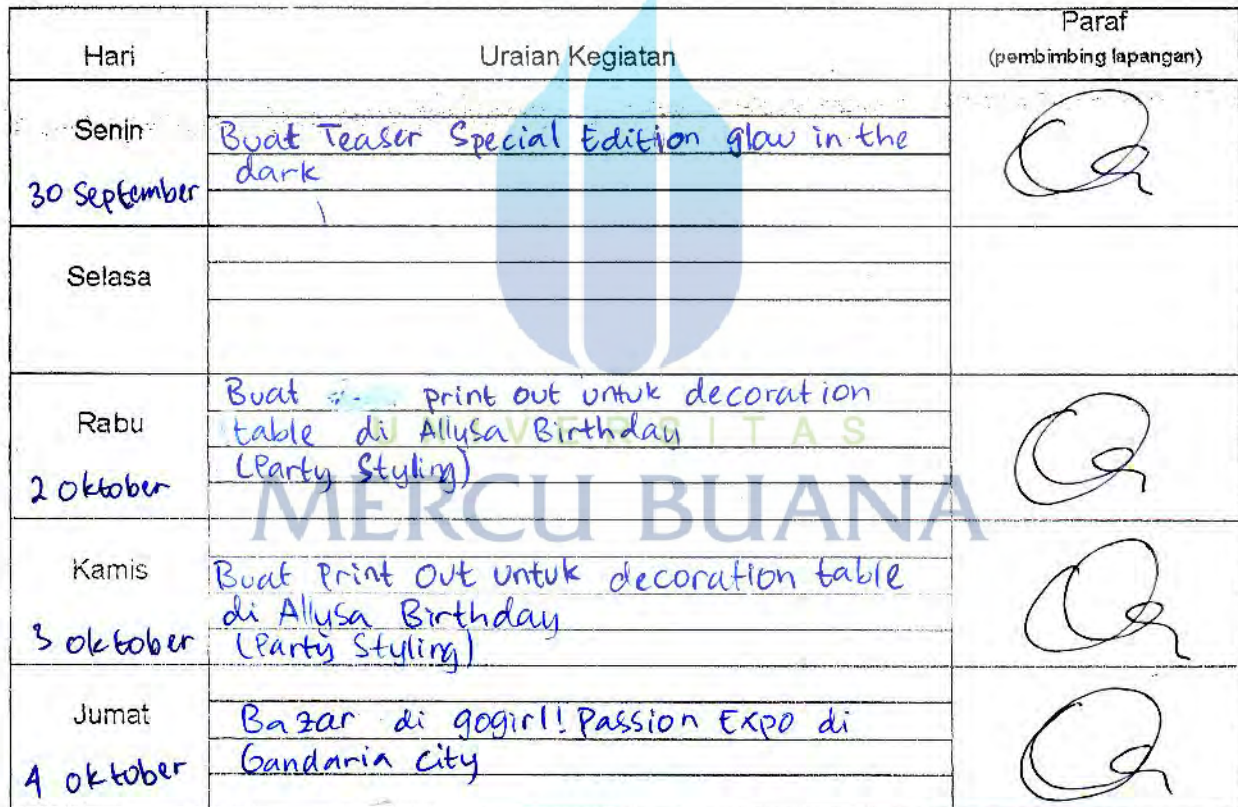 Hari Uraian Kegiatan Paraf
(pembimbing lapangan)
Senin
30 September
Buat Teaser Special Edition glow in the
dark
Selasa
Rabu
2 Oktober
Buat print out untuk decoration
table di Allysa Birthday
(Party Styling)
UNIVERSITAS
MERCU BUANA
Kamis
3 Oktober
Buat Print Out untuk decoration table
di Allysa Birthday
(Party Styling)
Jumat
4 Oktober
Bazar di gogirl! Passion Expo di
Gandaria City